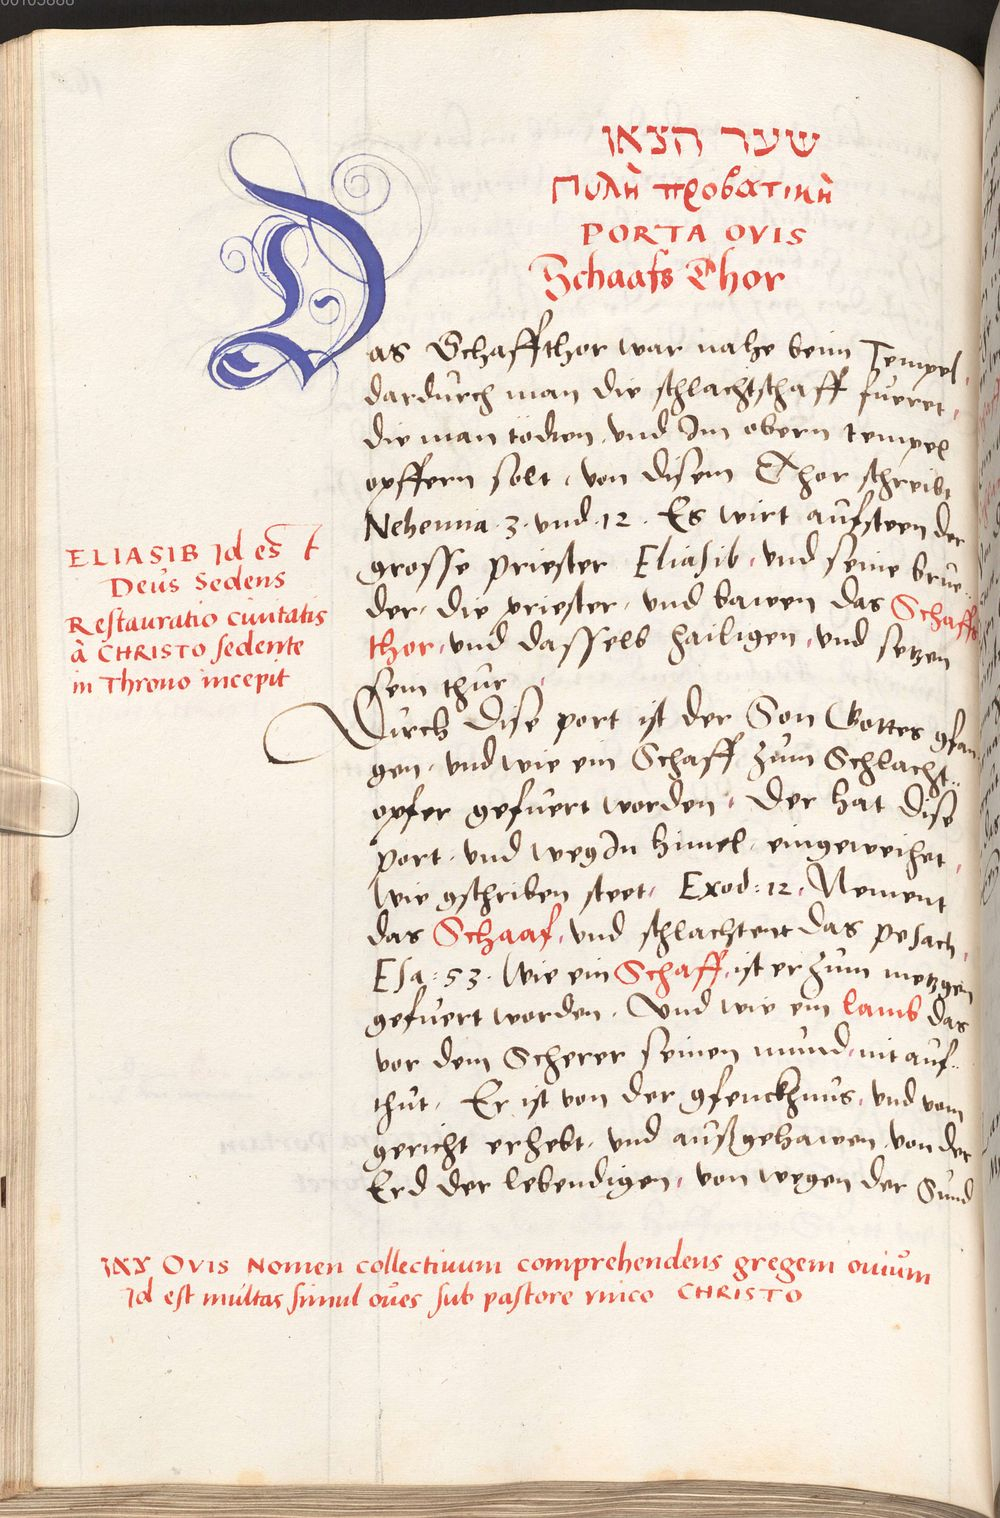 שער הצאן
Πυλὴ προβατικὴ
PORTA OVIS
Schaafs Thor
Das Schaffthor war nahe beim Tempel,
dardurch man die schlachtschaff fueret,
die man tödten, und Im obern tempel
opffern solt, von disem Thor schreibt
Nehemia .3. und .12. Es wirt aufsteen der
grosse priester Eliasib, und seine brue=
der, die priester, und bawen das Schaffs
thor, und dasselb hailigen, und setzen
sein thur.
Durch dise port ist der Son Gottes gfan=
gen, und wie ein Schaff zum Schlacht=
opfer gefuert worden, Der hat dise
port, und weg In himel, eingeweihet,
Wie gschriben steet, Exod: 12. Nement
das Schaaf, und schlachtent das pesach,
Esa: 53. Wie ein Schaff, ist er zum metzgen
gefuert worden. Und wie ein lamb das
vor dem Scherer seinen mund nit auf=
thut, Er ist von der gfenckhnus, und vom
gericht erhebt, und außgehawen von der
Erd der lebendigen, von wegen der Sund
ELIASIB Id est
Deus Sedens
Restauratio ciuitatis
à CHRISTO sedente
in Throno incepit
צאן OVIS Nomen collectiuum comprehendens gregem ouium
Id est multas simul oues sub pastore vnico CHRISTO